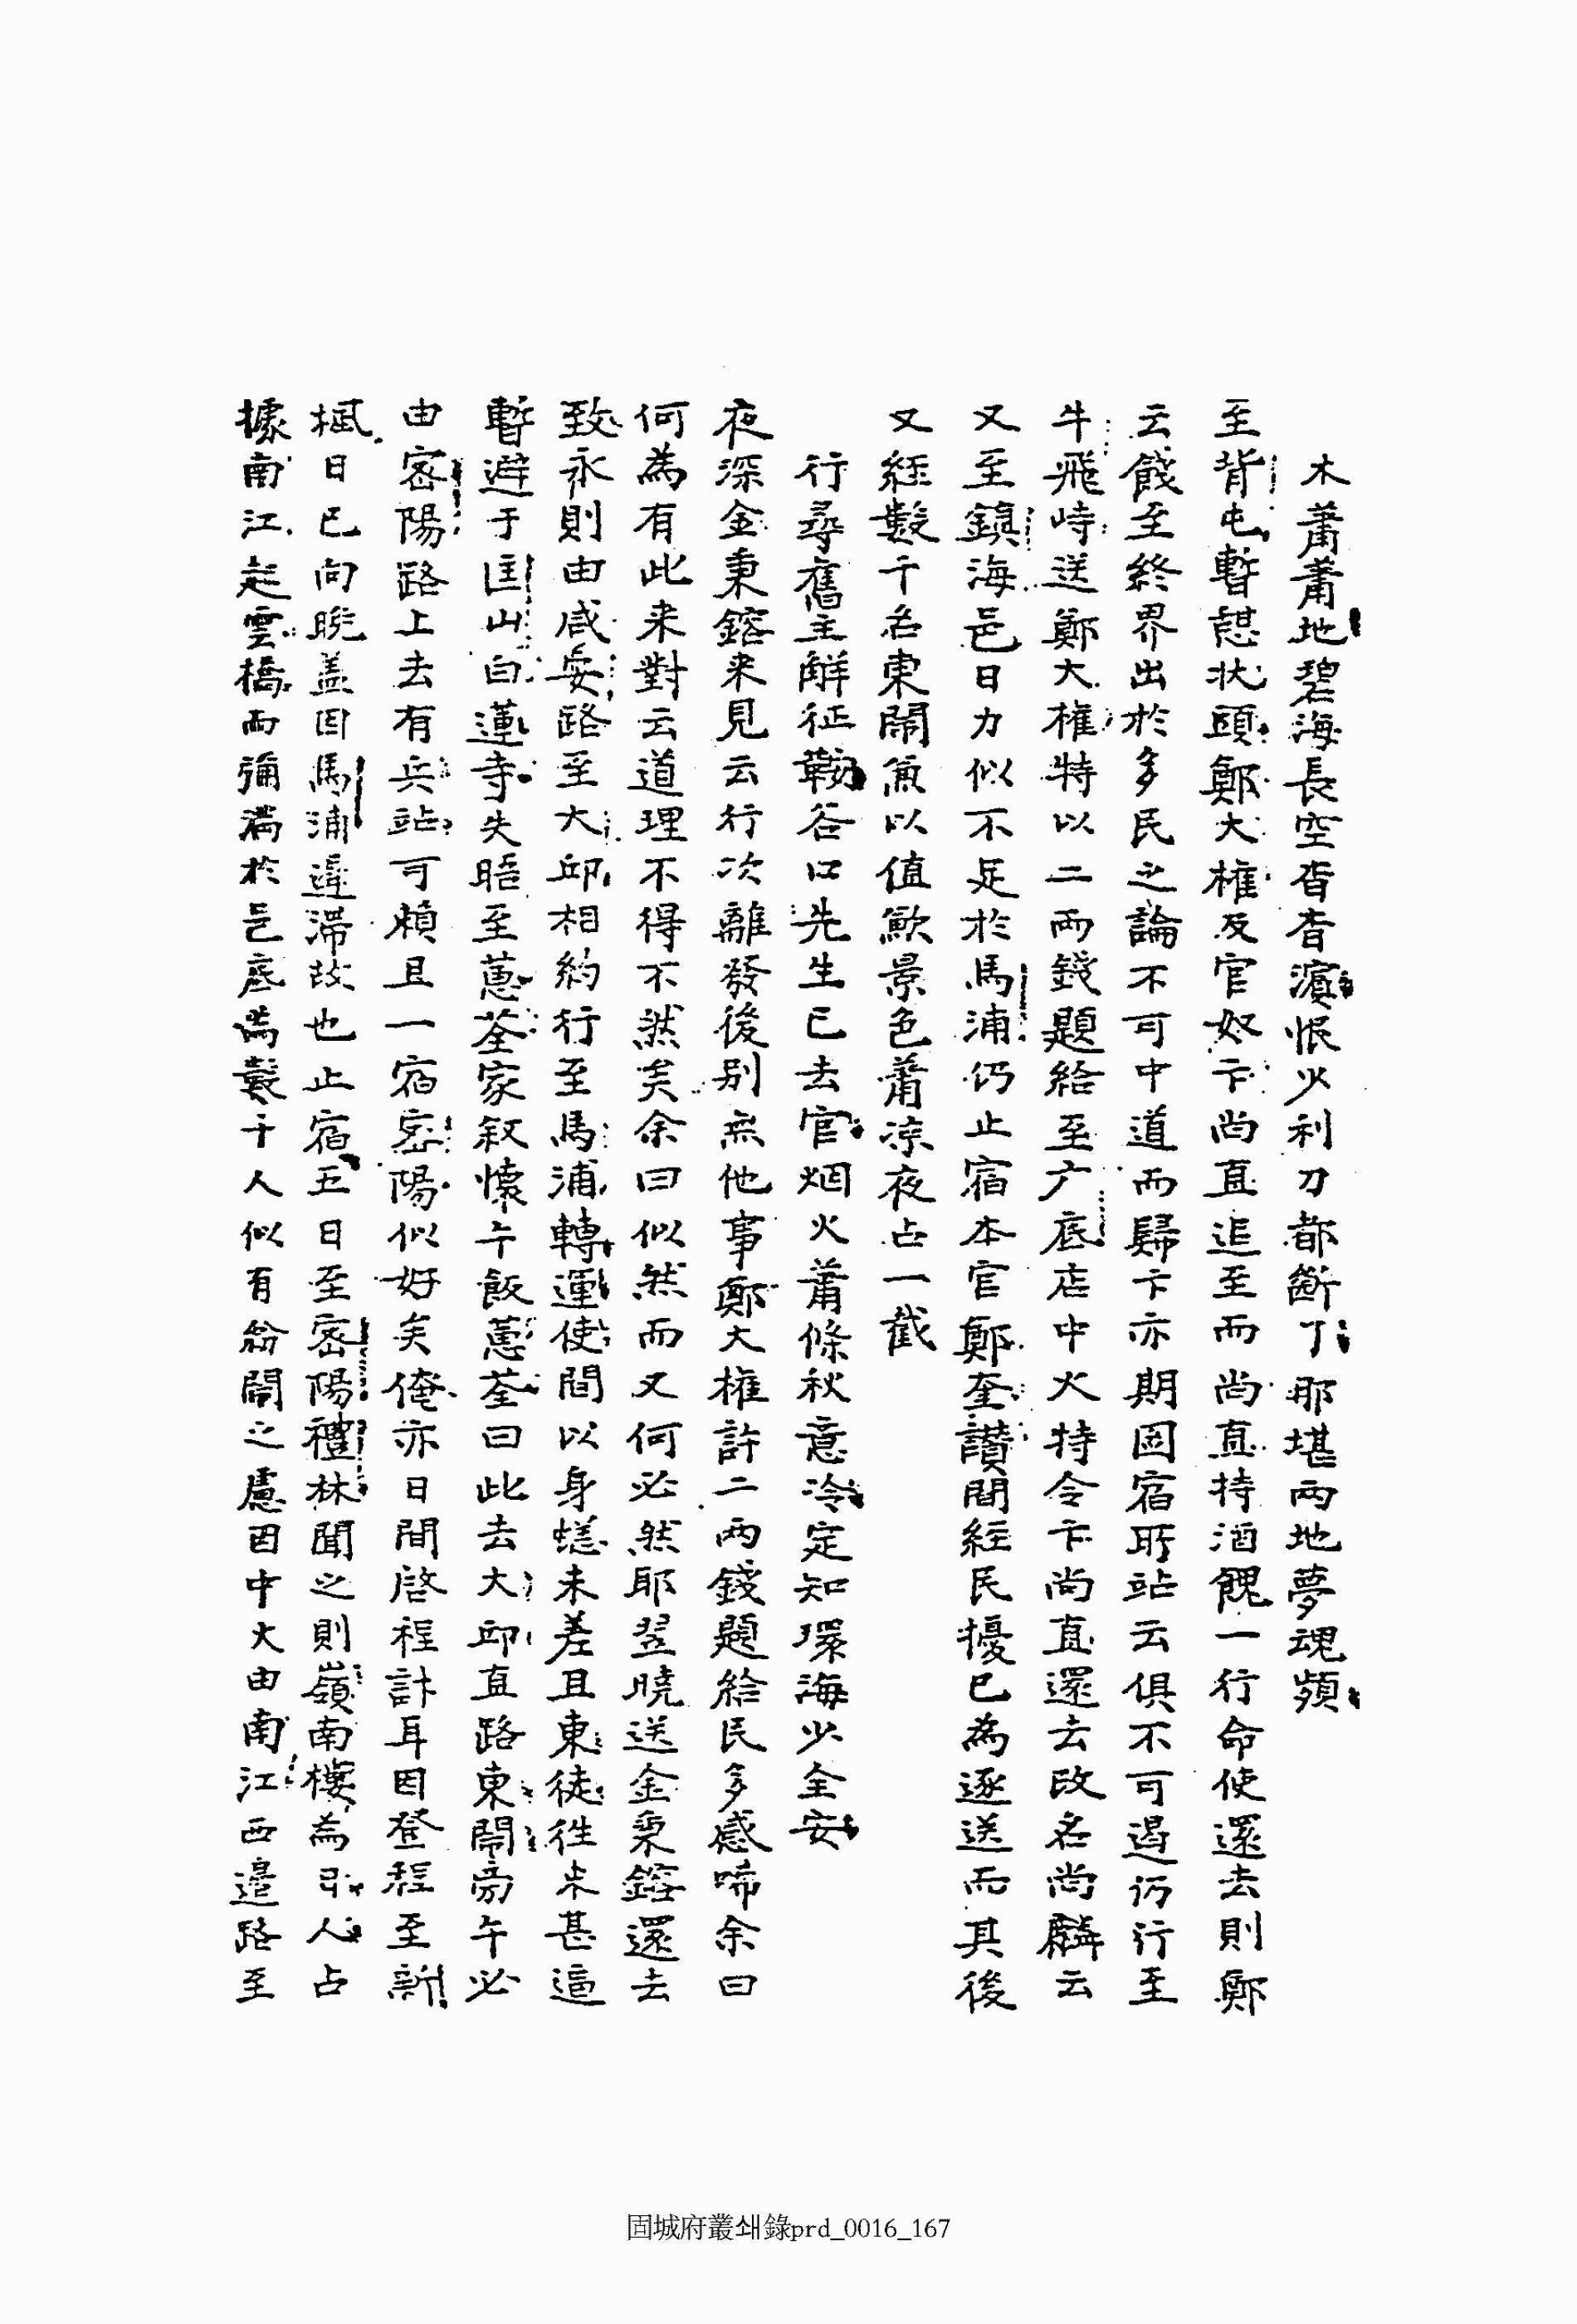 木蕭蕭地碧海長空杳杳濱恨火利刀都斷了那堪兩地夢魂頻
至背屯暫憩狀頭鄭大權及官奴卞尙直追至而尙直持酒餽一行命使還去則鄭
云餞至終界出於多民之論不可中道而歸卞亦期固宿所站云俱不可遏仍行至
牛飛峙送鄭大權特以二兩錢題給至广底店中火特令卞尙直還去改名尙麟云
又至鎭海邑日力似不足於馬浦仍止宿本官鄭奎讃間經民擾已為逐送而其後
又經數千名東鬧兼以値歉景色蕭凉夜占一截
行尋舊主解征鞍谷口先生已去官烟火蕭條秋意冷定知環海少全安
夜深金秉鎔来見云行次離發後別無他事鄭大權許二兩錢題給民多感啼余曰
何為有此来對云道理不得不然矣余曰似然而又何必然耶翌曉送金秉鎔還去
致永則由咸安路至大邱相約行至馬浦轉運使間以身恙未差且東徒徃來甚逼
暫避于匡山白蓮寺失晤至蕙荃家叙懷午飯蕙荃曰此去大邱直路東鬧旁午必
由密陽路上去有兵站可頼且一宿密陽似好矣俺亦日間啓程計耳因登程至新
楓日已向晩盖因馬浦遲滯故也止宿五日至密陽禮林聞之則嶺南樓為引人占
據南江起雲橋而彌滿於邑底為數千人似有紛鬧之慮因中火由南江西邉路至
固城府叢쇄錄prd_0016_167